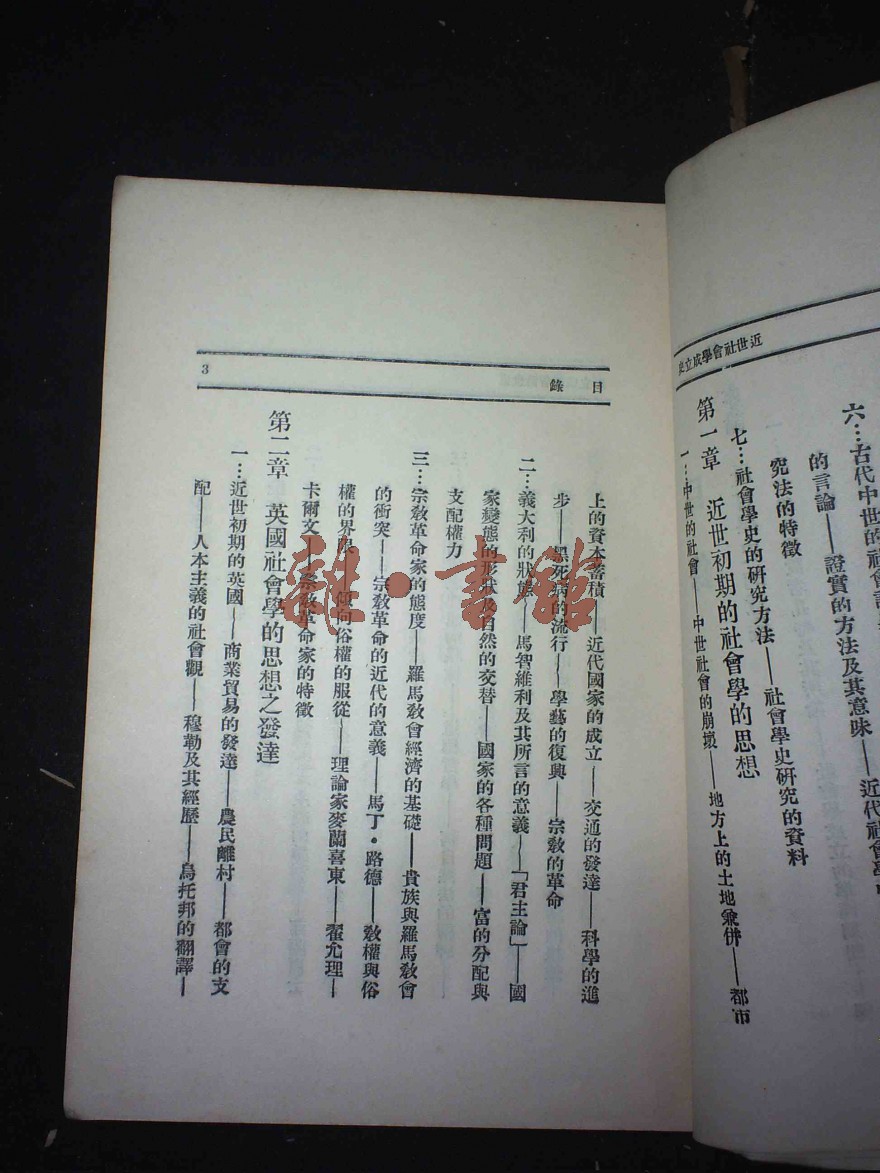 近世社會學成立史
六…古代中世的社會
的言論——證實的方法及其意味——近代社會學
究法的特徵
七…社會學史的研究方法——社會學史研究的資料
第一章 近世初期的社會學的思想
一…中世的社會——中世社會的崩壞——地方上的土地兼併——都市
目錄
3
上的資本蓄積——近代國家的成立——交通的發達——科學的進
步——黑死病的流行——學藝的復興——宗教的革命
二…義大利的狀態——馬智維利及其所言的意義——「君主論」——國
家變態的形狀及自然的交替——國家的各種問題——富的分配與
支配權力
三…宗教革命家的態度——羅馬教會經濟的基礎——貴族與羅馬教會
的衝突——宗教革命的近代的意義——馬丁·路德——教權與俗
權的界限——傾向俗權的服從——理論家麥蘭喜東——翟允理——
卡爾文——宗教革命家的特徵
第二章 英國社會學的思想之發達
一…近世初期的英國——商業貿易的發達——農民離村——都會的支
配——人本主義的社會觀——穆勒及其經歷——烏托邦的翻譯——
雜·書館